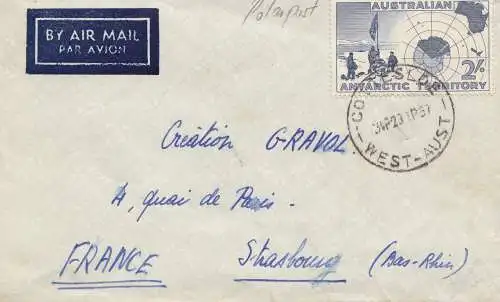 BY AIR MAIL
PAR AVION
Polarpost
AUSTRALIAN
2/-
ANTARCTIC TERRITORY
WEST-AUST
Création GRAVOL
4, Quai de Paris
FRANCE Strasbourg (Bas-Rhin)